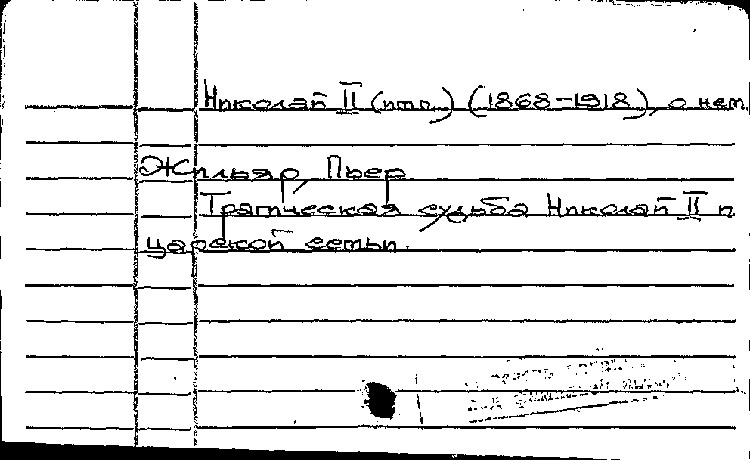 Николай II (имп.) (1868-1918), о нем.
Жильяр, Пьер
Трагическая судьба Николая II и
царской семьи.